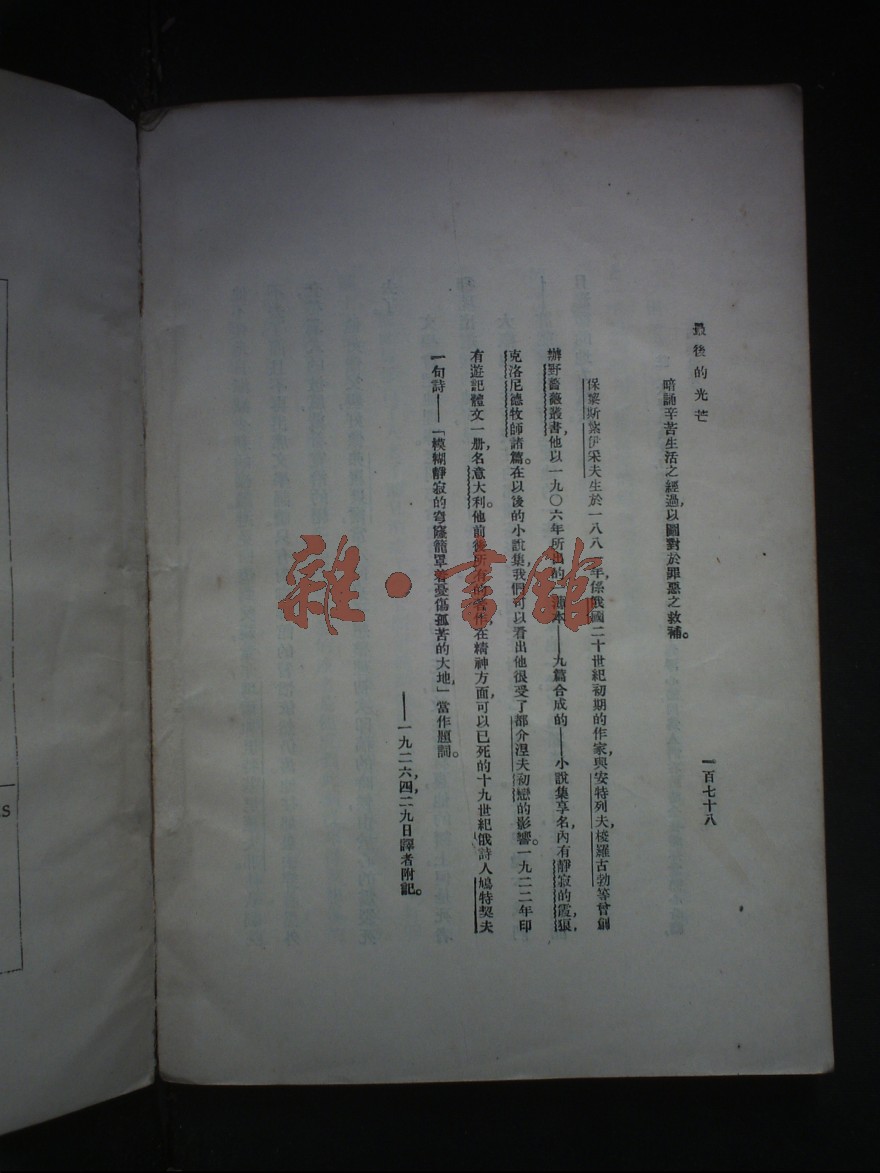 最後的光芒
一百七十八
暗誦辛苦生活之經過,以圖對於罪惡之救補。
保黎斯紥伊采夫生於一八八一年,係俄國二十世紀初期的作家,與安特列夫梭羅古勃等曾創
辦野薔薇叢書,他以一九〇六年所出的一薄本——九篇合成的——小說集享名,內有靜寂的霞痕,
克洛尼德牧師諸篇。在以後的小說集我們可以看出他很受了都介涅夫初戀的影響。一九二二年印
有遊記體文一册,名意大利。他前後所有的著作,在精神方面,可以已死的十九世紀俄詩人鳩特契夫
一句詩——「模糊靜寂的穹窿籠罩着憂傷孤苦的大地,」當作題詞。
——一九二六,四,二九日譯者附記。
雜·書館
S